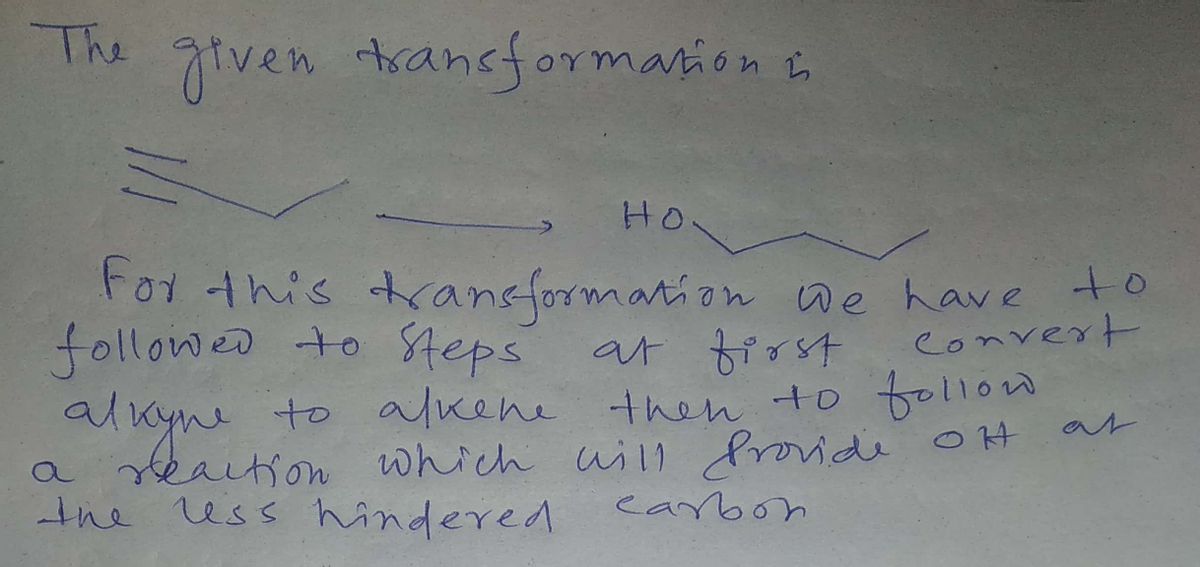 The given transformation is
HO
For this transformation we have to
followed to Steps at first convert
alkyne to alkene then to follow
a reaction which will Provide OH at
the less hindered carbon